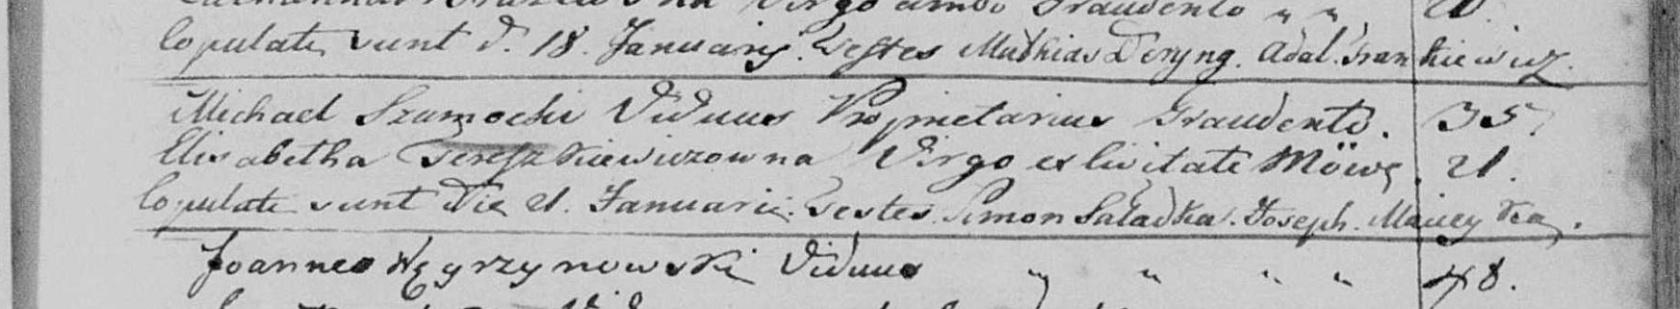 Virgo ambo Graudento " "
Copulati sunt d. 18. Januarij. Testes Mathias Deryng. Adal. Frankiewicz.
Michael Szumocki Viduus Proprietarius Graudento. 35.
Elisabetha Tereszkiewiczowna Virgo ex Civitate Möwę. 21.
Copulati sunt Die 21. Januarii. Testes Simon Saładka. Joseph.
Joannes Węgrzynowski Viduus " " " " 48.